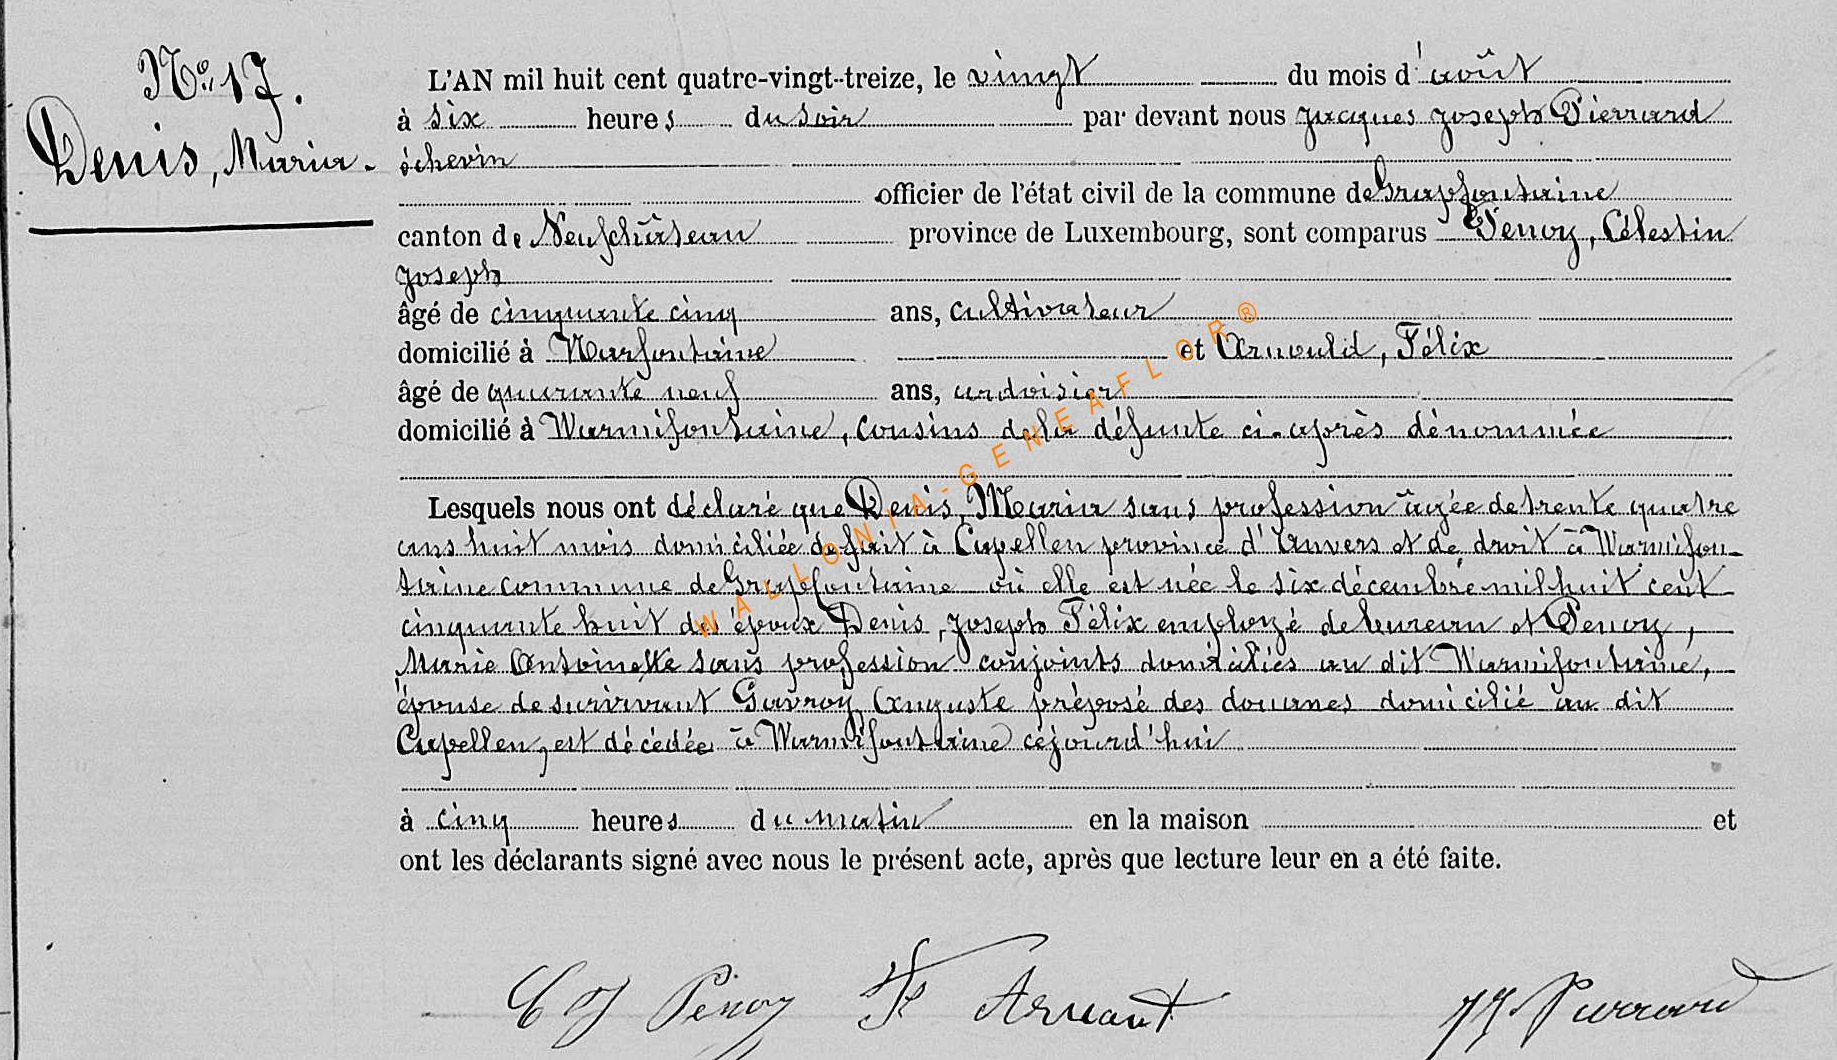 No 17.
Denis, Maria.
L'AN mil huit cent quatre-vingt-treize, le vingt du mois d'août
à six heures du soir par devant nous Jacques Joseph Pierrard
échevin
officier de l'état civil de la commune de Grapfontaine
canton de Neufchâteau province de Luxembourg, sont comparus Penoy, Célestin
Joseph
âgé de cinquante cinq ans, cultivateur
domicilié à Narfontaine et Arnould, Félix
âgé de quarante neuf ans, ardoisier
domicilié à Warmifontaine, cousins de la défunte ci-après dénommée
Lesquels nous ont déclaré que Denis, Maria sans profession âgée de trente quatre
ans huit mois domiciliée de fait à Capellen province d'Anvers et de droit à Warmifon-
taine commune de Grapfontaine où elle est née le six décembre mil huit cent
cinquante huit des époux Denis, Joseph Félix employé de bureau et Penoy,
Marie Antoinette sans profession conjoints domiciliés au dit Warmifontaine,
épouse de survivant Gavroy Auguste préposé des douanes domicilié au dit
Capellen, est décédée à Warmifontaine cejourd'hui
à cinq heures du matin en la maison et
ont les déclarants signé avec nous le présent acte, après que lecture leur en a été faite.
C J Penoy F Arnould J J Pierrard
WALLONIA-GENEAFLOR®